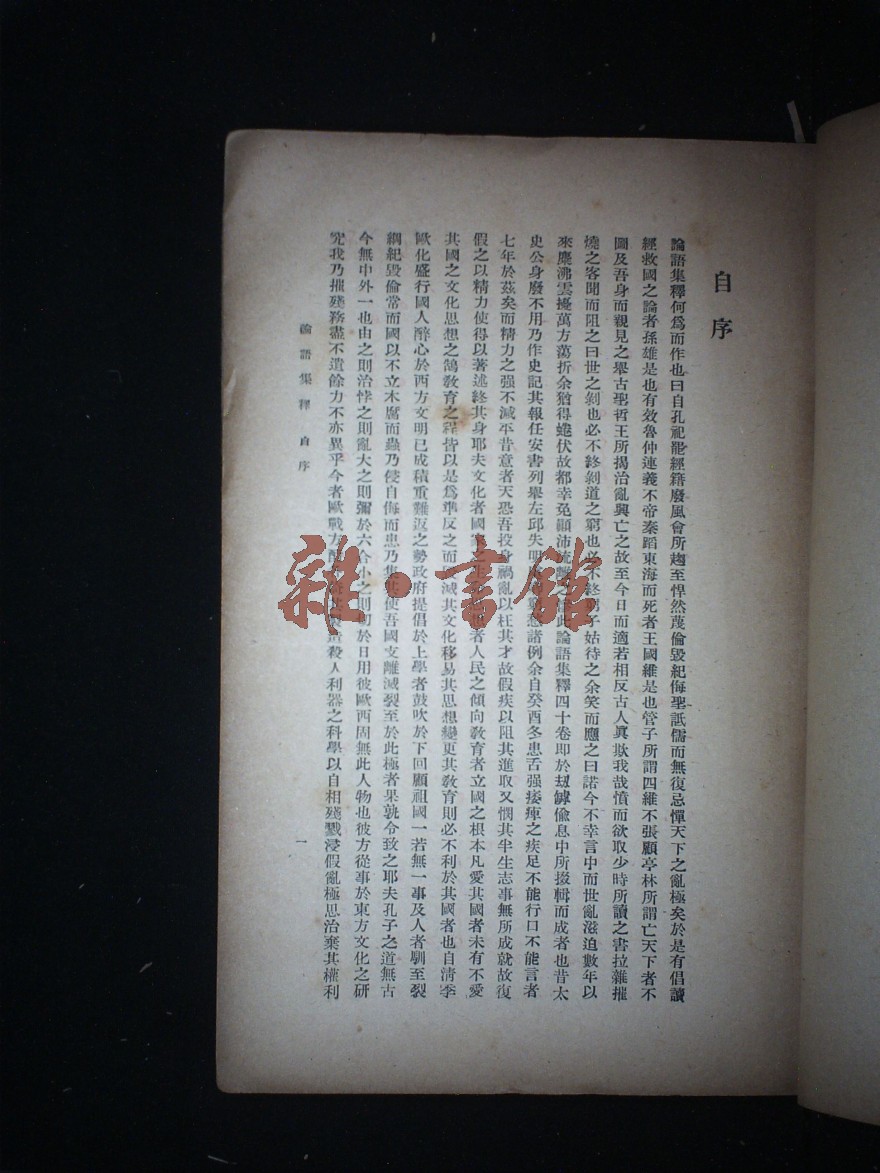 自序
論語集釋何爲而作也曰自孔祀罷經籍廢風會所趨至悍然蔑倫毀紀侮聖詆儒而無復忌憚天下之亂極矣於是有倡讀
經救國之論者孫雄是也有效魯仲連義不帝秦蹈東海而死者王國維是也管子所謂四維不張顧亭林所謂亡天下者不
圖及吾身而親見之舉古聖哲王所揭治亂興亡之故至今日而適若相反古人眞欺我哉憤而欲取少時所讀之書拉雜摧
燒之客聞而阻之曰世之剝也必不終剝道之窮也必不終窮子姑待之余笑而應之曰諾今不幸言中而世亂滋迫數年以
來麋沸雲擾萬方蕩折余猶得蜷伏故都幸免顛沛流離之此論語集釋四十卷即於刼罅偸息中所掇輯而成者也昔太
史公身廢不用乃作史記其報任安書列舉左邱失明諸例余自癸酉冬患舌强痿痺之疾足不能行口不能言者
七年於茲矣而精力之强不減平昔意者天恐吾投身禍亂以枉其才故假疾以阻其進取又憫其半生志事無所成就故復
假之以精力使得以著述終其身耶夫文化者國家之者人民之傾向敎育者立國之根本凡愛其國者未有不愛
其國之文化思想之鵠敎育之程皆以是爲準反之而滅其文化移易其思想變更其敎育則必不利於其國者也自淸季
歐化盛行國人醉心於西方文明已成積重難返之勢政府提倡於上學者鼓吹於下回顧祖國一若無一事及人者馴至裂
綱紀毀倫常而國以不立木腐而蟲乃侵自侮而患乃集其使吾國支離滅裂至於此極者果孰令致之耶夫孔子之道無古
今無中外一也由之則治悖之則亂大之則彌於六合小之則切於日用彼歐西固無此人物也彼方從事於東方文化之硏
究我乃摧殘務盡不遺餘力不亦異乎今者歐戰方製造殺人利器之科學以自相殘戮浸假亂極思治棄其權利
論語集釋 自序
一
雜·書館